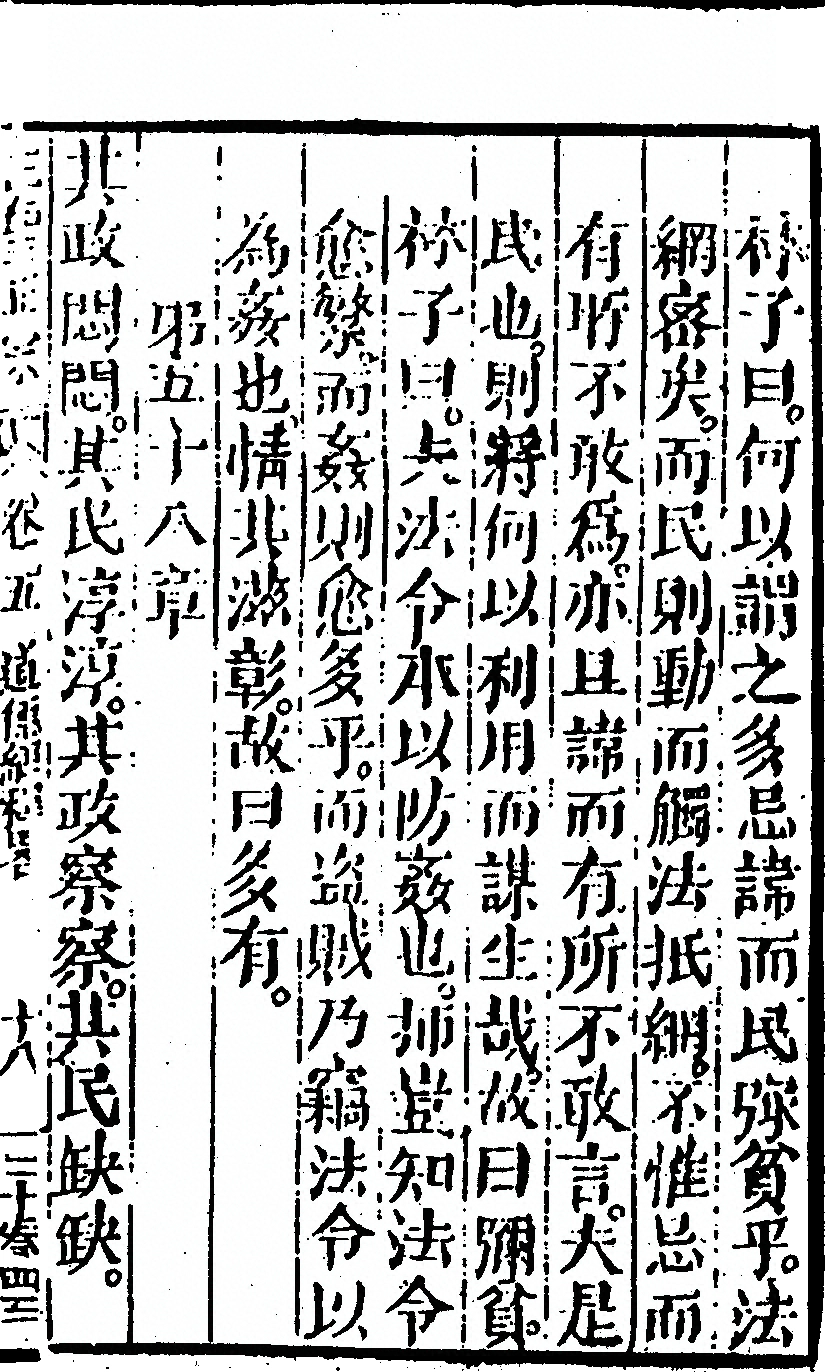 林子曰。何以謂之多忌諱而民彌貧乎。法
網密矣。而民則動而觸法抵網。不惟忌而
有所不敢為。亦且諱而有所不敢言。夫是
民也。則將何以利用而謀生哉。故曰彌貧。
林子曰。夫法令本以防姦也。抑豈知法令
愈繁。而姦則愈多乎。而盜賊乃竊法令以
為姦也。情其滋彰。故曰多有。
第五十八章
其政悶悶。其民淳淳。其政察察。其民缺缺。
卷五 道德經釋畧 十八